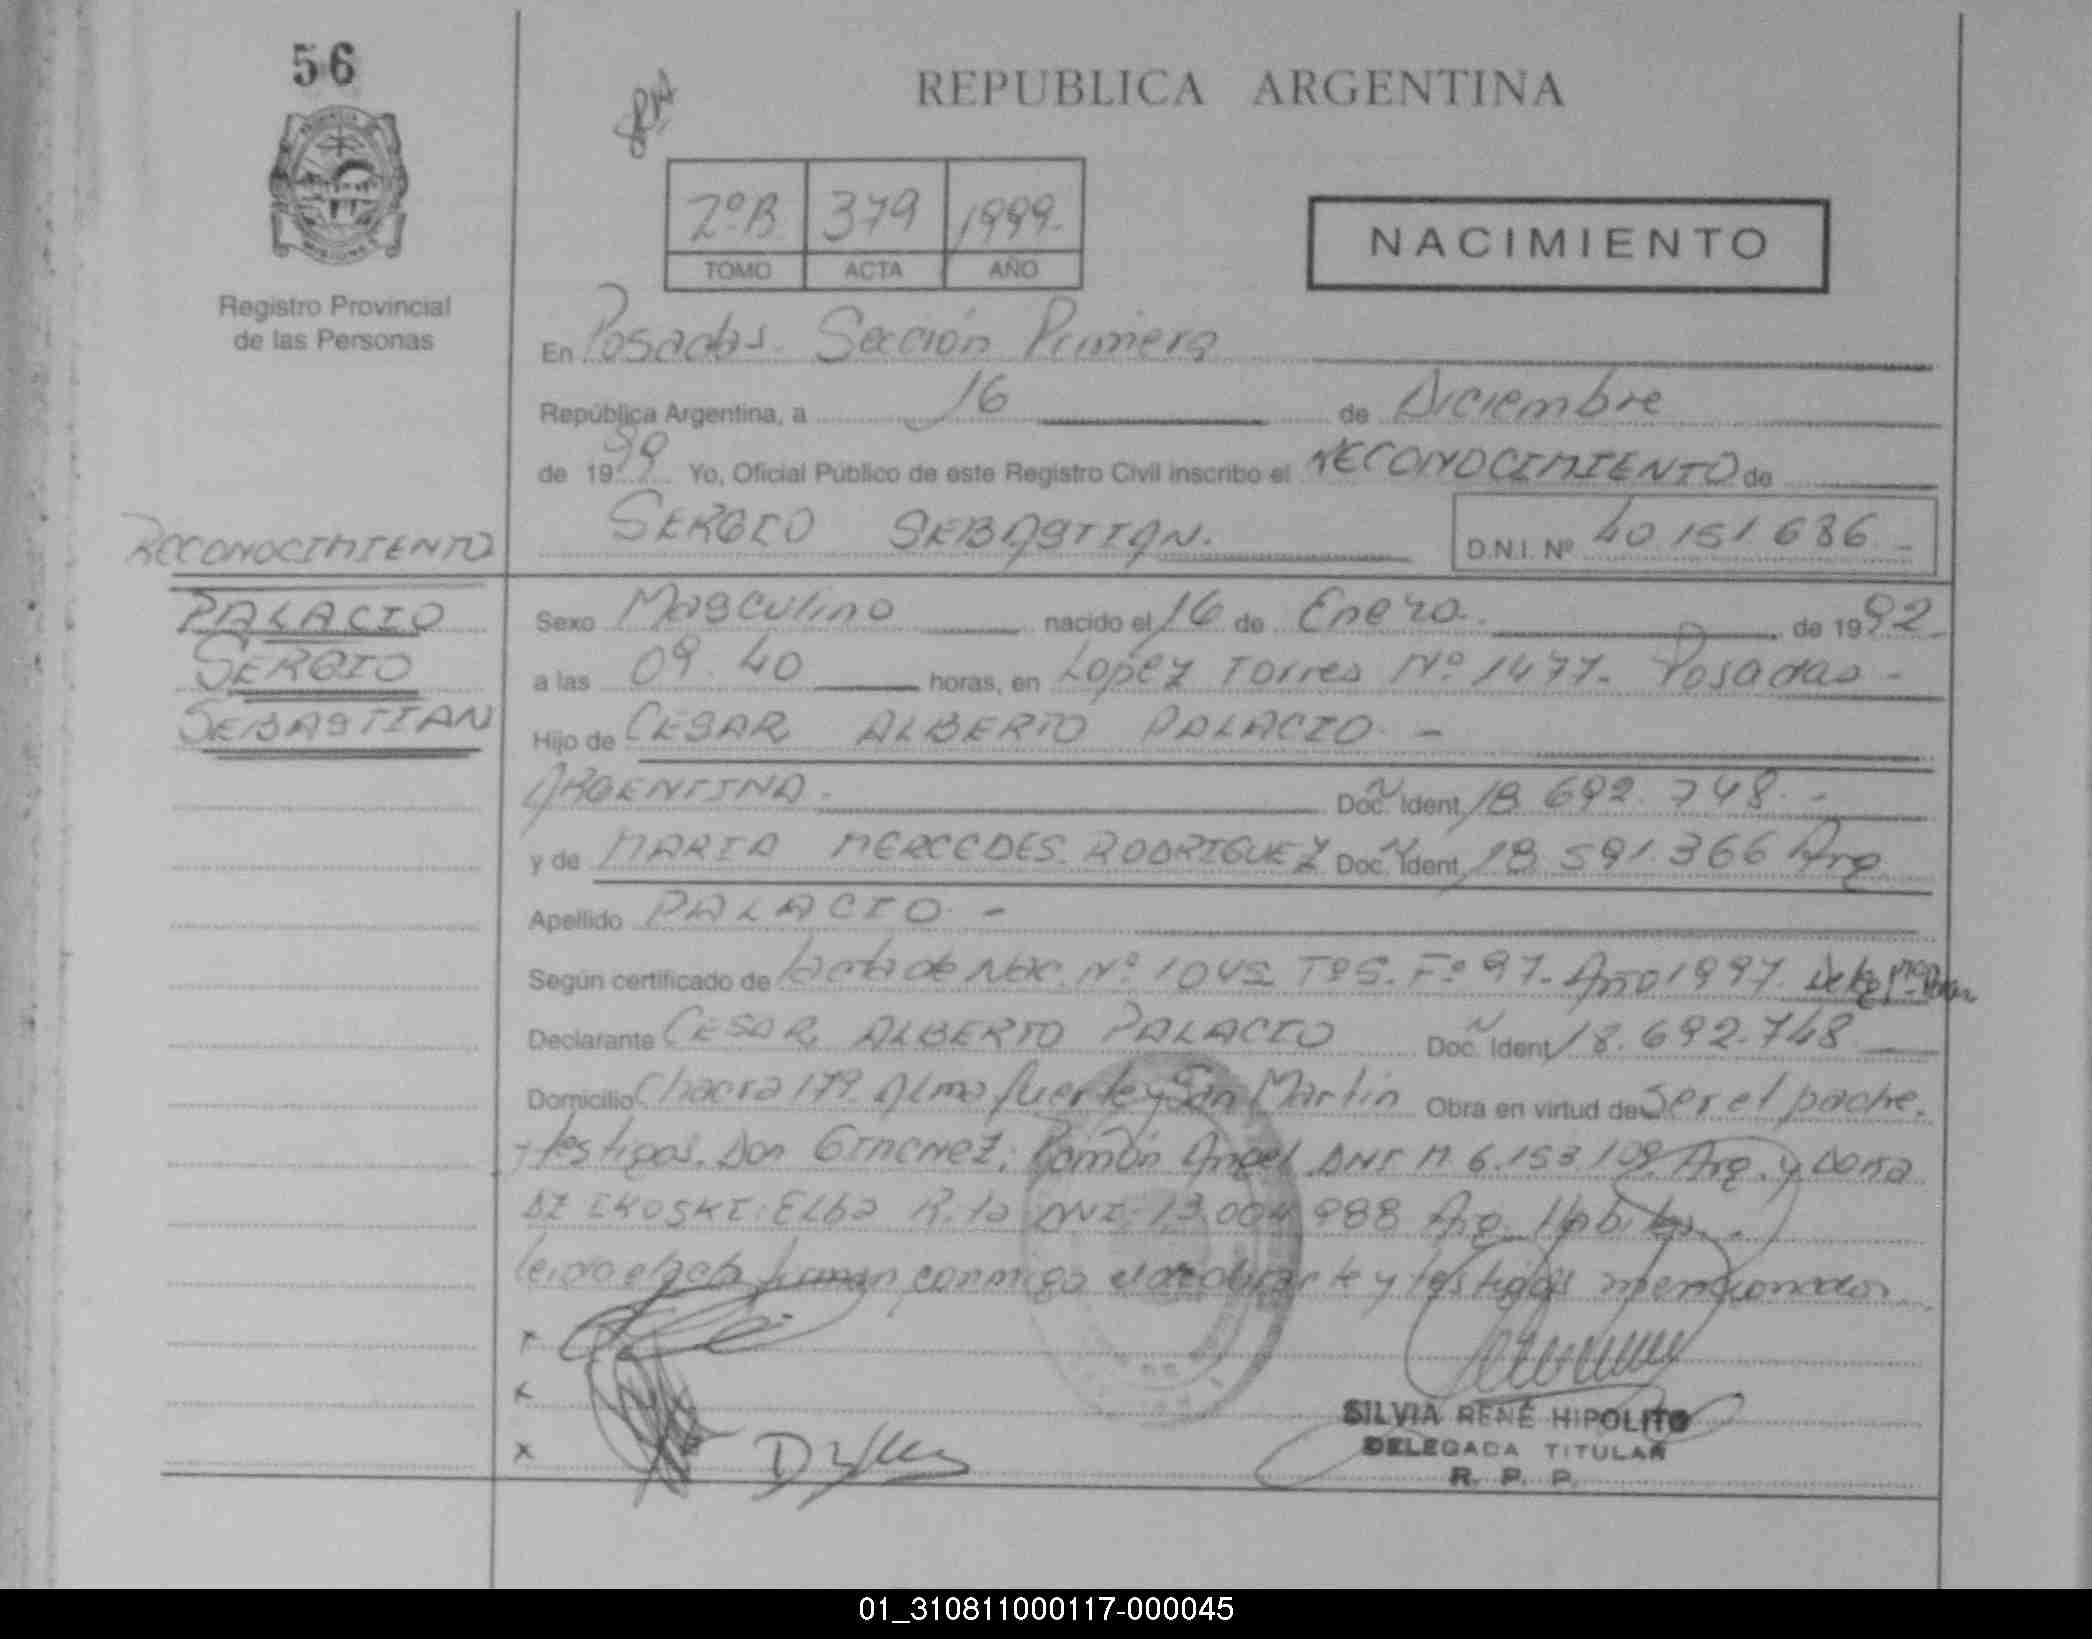 56
REPUBLICA ARGENTINA
2ºB 379 1999.
TOMO ACTA AÑO
NACIMIENTO
Registro Provincial
de las Personas
En Posadas. Sección Primera
República Argentina, a 16 de Diciembre
de 1999 Yo, Oficial Público de este Registro Civil inscribo el RECONOCIMIENTO de
SERGIO SEBASTIAN. D.N.I. Nº 40 151 686 -
RECONOCIMIENTO
PALACIO
SERGIO
SEBASTIAN
Sexo Masculino nacido el 16 de Enero. de 1992.
a las 09.40 horas, en Lopez Torres Nº 1477. Posadas -
Hijo de CESAR ALBERTO PALACIO. -
ARGENTINA. - Doc. Ident. 18.692.748. -
y de MARIA MERCEDES RODRIGUEZ Doc. Ident. 18.591.366 Arg.
Apellido PALACIO. -
Según certificado de acta de Nac. Nº 1042 Tº5. Fº 97. Año 1997.
Declarante CESAR ALBERTO PALACIO Doc. Ident. 18.692.748
Domicilio Chacra 179 Almafuerte y San Martin Obra en virtud de Ser el padre.
testigos. Don GIMENEZ, Ramón Angel DNI M 6.153 109. Arg. y Doña
Elba Rita DNI. 13.004 988 Arg. Habiles.
leida el acta firman conmigo el declarante y testigos mencionados
x
x
x
SILVIA RENÉ HIPOLITO
DELEGADA TITULAR
R. P. P.
01_310811000117-000045